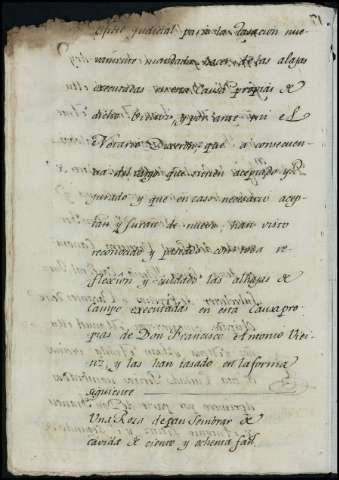 oficio judicial para la tasacion nue-
vamente mandada hacer de las alajas
executadas en esta Causa propias de
dicho y por ante mi el
Notario Dixeron: que a consequen-
cia del cargo que tienen aceptado y
jurado y que en caso necesario acep-
tan y juran de nuevo, han visto
reconocido y pesado con toda re-
flexion y cuidado las alhajas de
campo executadas en esta Causa pro-
pias de Don Francisco Antonio
y las han tasado en la forma
siguiente
Una Roza de pan sembrar de
cavida de ciento y ochenta fan.